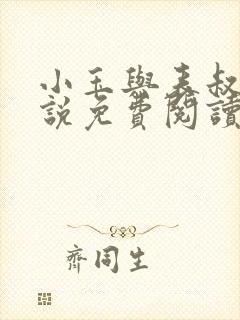 小玉與表叔
說免費閱讀
齊同生